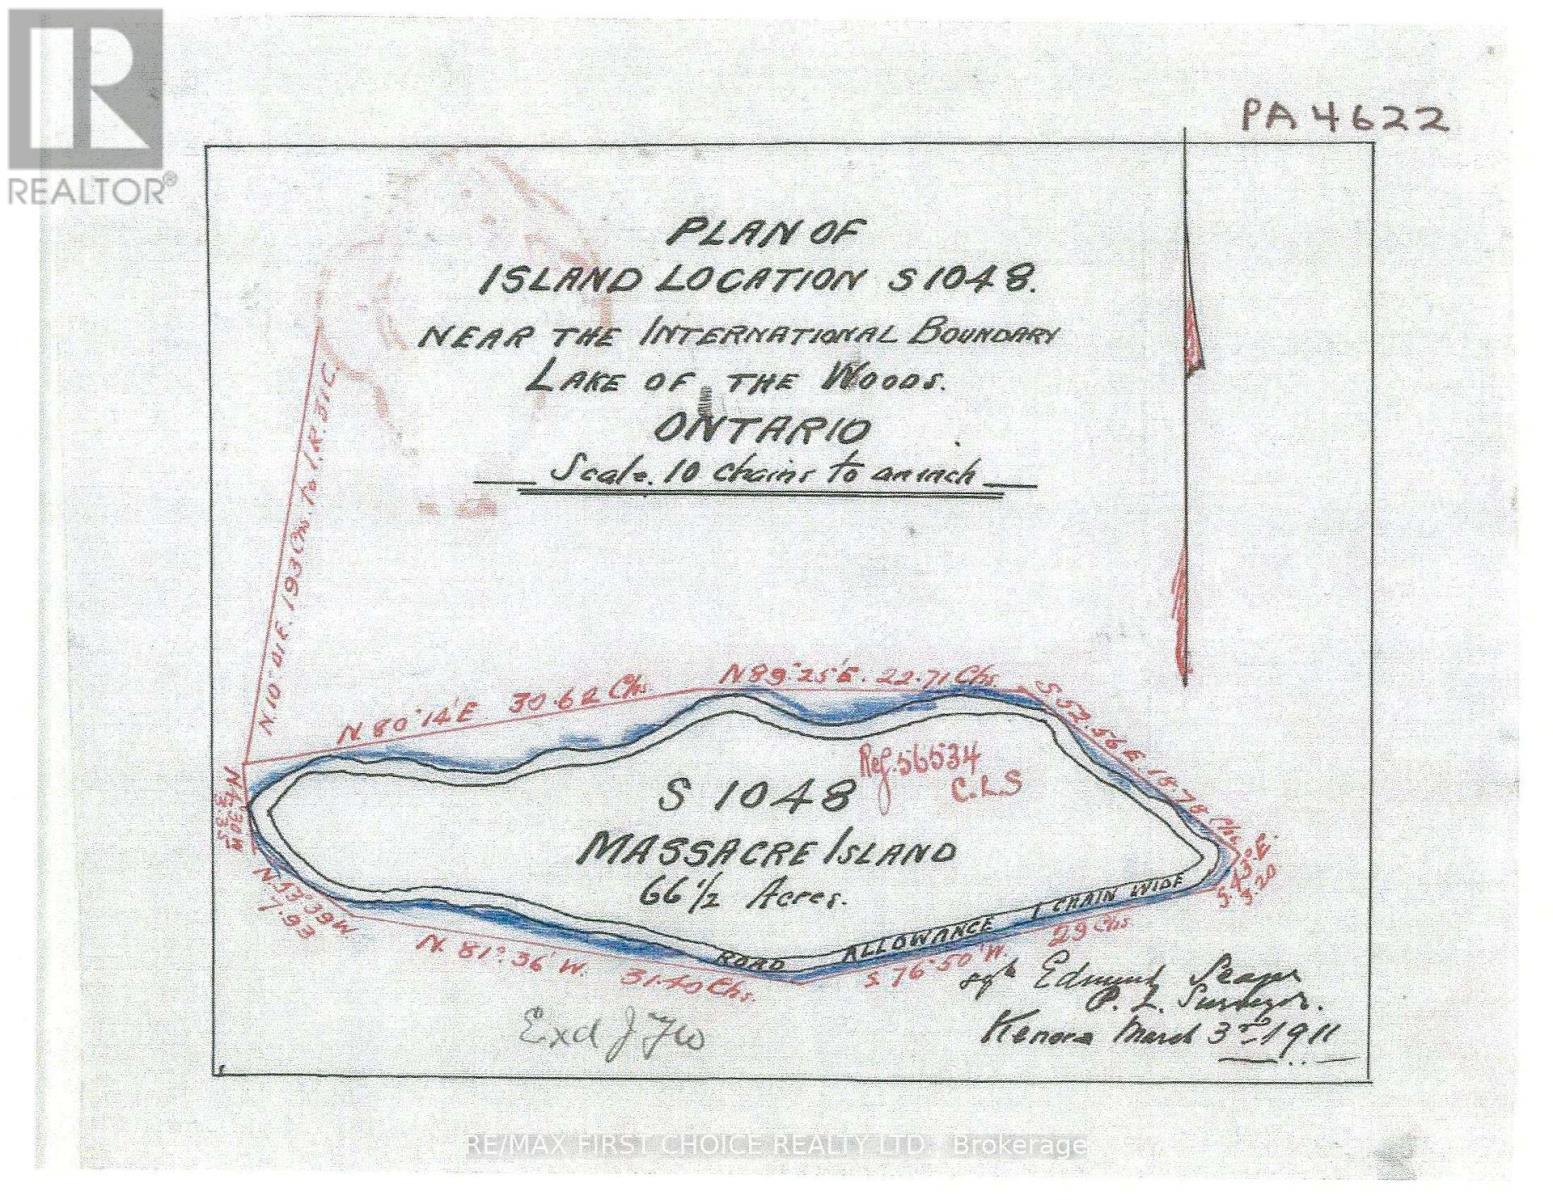 REALTOR®
PA 4622
PLAN OF
ISLAND LOCATION S 1048.
NEAR THE INTERNATIONAL BOUNDARY
LAKE OF THE WOODS.
ONTARIO
Scale. 10 chains to an inch
N.10°01'E. 193 Chs. To I.R. 31C.
N. 80°14'E 30.62 Chs.
N 89°25'E. 22.71 Chs.
S.52.56 E 18.78 Chs
S. 43°E.
3.20
Ref. 56534
C.L.S
S 1048
MASSACRE ISLAND
66 1/2 Acres.
3.35
N.53°39'W.
7.93
N. 81°36'W. 31.40 Chs.
ROAD ALLOWANCE 1 CHAIN WIDE
S. 76°50'W. 29 Chs
sgd Edmund
P. L. Surveyor.
Kenora March 3rd 1911
Exd
RE/MAX FIRST CHOICE REALTY LTD., Brokerage